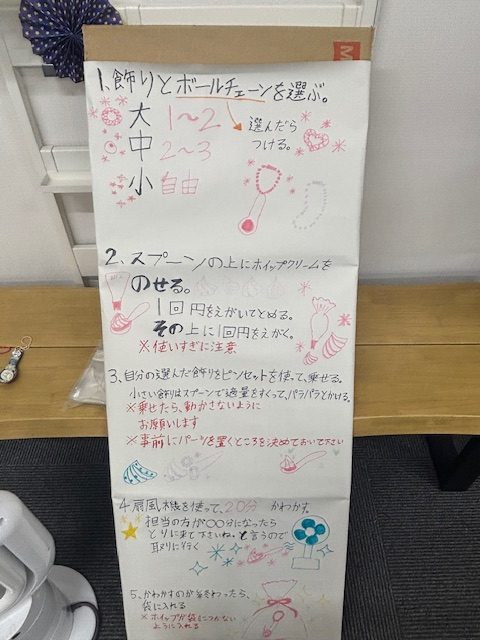 1、飾りとボールチェーンを選ぶ。
大 1〜2
中 2〜3
小 自由
選んだら
つける。
2、スプーンの上にホイップクリームを
のせる。
1回円をえがいてとめる。
その上に1回円をえがく。
※使いすぎに注意
3、自分の選んだ飾りをピンセットを使って、乗せる。
小さい飾りはスプーンで適量をすくって、パラパラとかける。
※乗せたら、動かさないように
お願いします
※事前にパーツを置くところを決めておいて下さい
4、扇風機を使って、20分 かわかす。
担当の方が〇〇分になったら
とりに来て下さいね。と言うので
取りに行く
5、かわかすのが終わったら、
袋に入れる
※ホイップが袋につかない
ように入れる
M